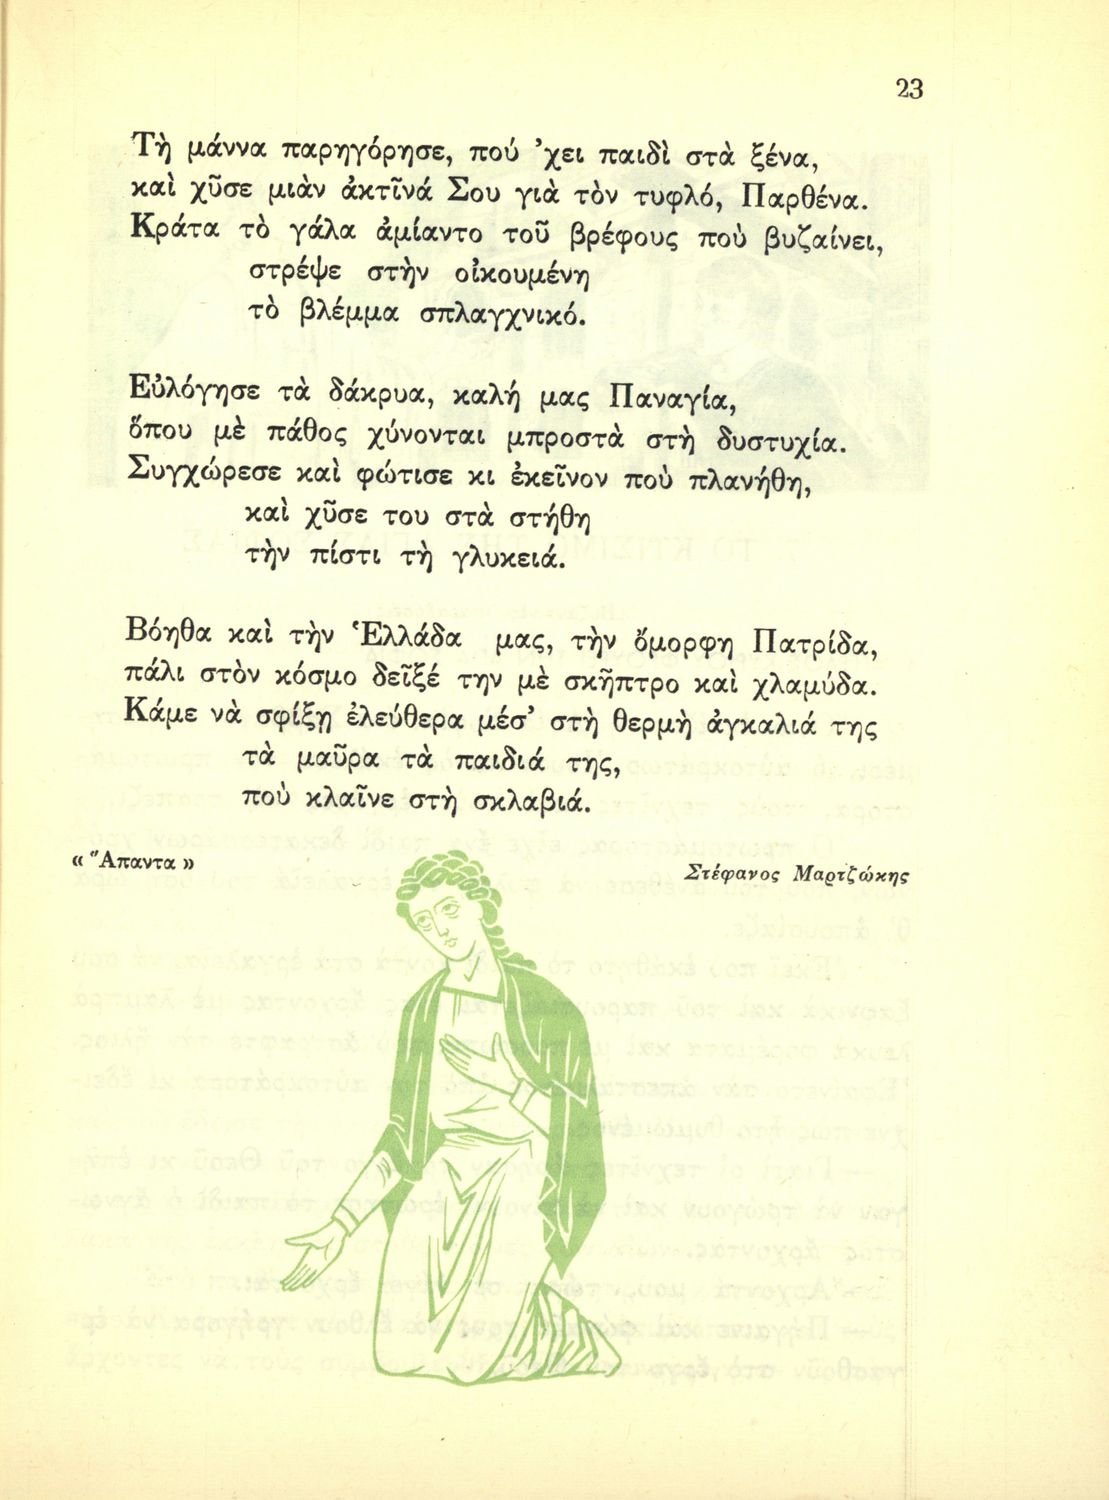 23
Τὴ μάννα παρηγόρησε, πού ’χει παιδὶ στὰ ξένα,
καὶ χῦσε μιὰν ἀκτῖνά Σου γιὰ τὸν τυφλό, Παρθένα.
Κράτα τὸ γάλα ἀμίαντο τοῦ βρέφους ποὺ βυζαίνει,
στρέψε στὴν οἰκουμένη
τὸ βλέμμα σπλαγχνικό.
Εὐλόγησε τὰ δάκρυα, καλή μας Παναγία,
ὅπου μὲ πάθος χύνονται μπροστὰ στὴ δυστυχία.
Συγχώρεσε καὶ φώτισε κι ἐκεῖνον ποὺ πλανήθη,
καὶ χῦσε του στὰ στήθη
τὴν πίστι τὴ γλυκειά.
Βόηθα καὶ τὴν Ἑλλάδα μας, τὴν ὄμορφη Πατρίδα,
πάλι στὸν κόσμο δεῖξέ την μὲ σκῆπτρο καὶ χλαμύδα.
Κάμε νὰ σφίξῃ ἐλεύθερα μέσ’ στὴ θερμὴ ἀγκαλιά της
τὰ μαῦρα τὰ παιδιά της,
ποὺ κλαῖνε στὴ σκλαβιά.
« Ἅπαντα »
Στέφανος Μαρτζώκης